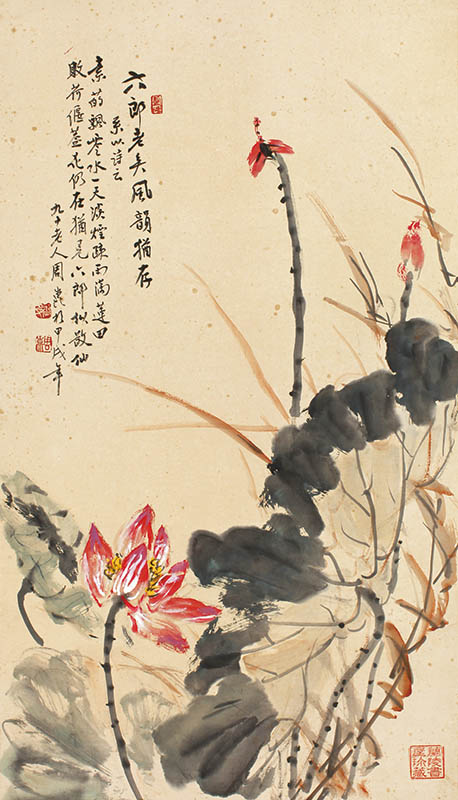 六郎老矣風韻猶存
系以詩云
素飄零水一天淡煙疎雨滿蓮田
敗荷偃蓋花仍在猶見六郎似散仙
九十老人周於甲戌年